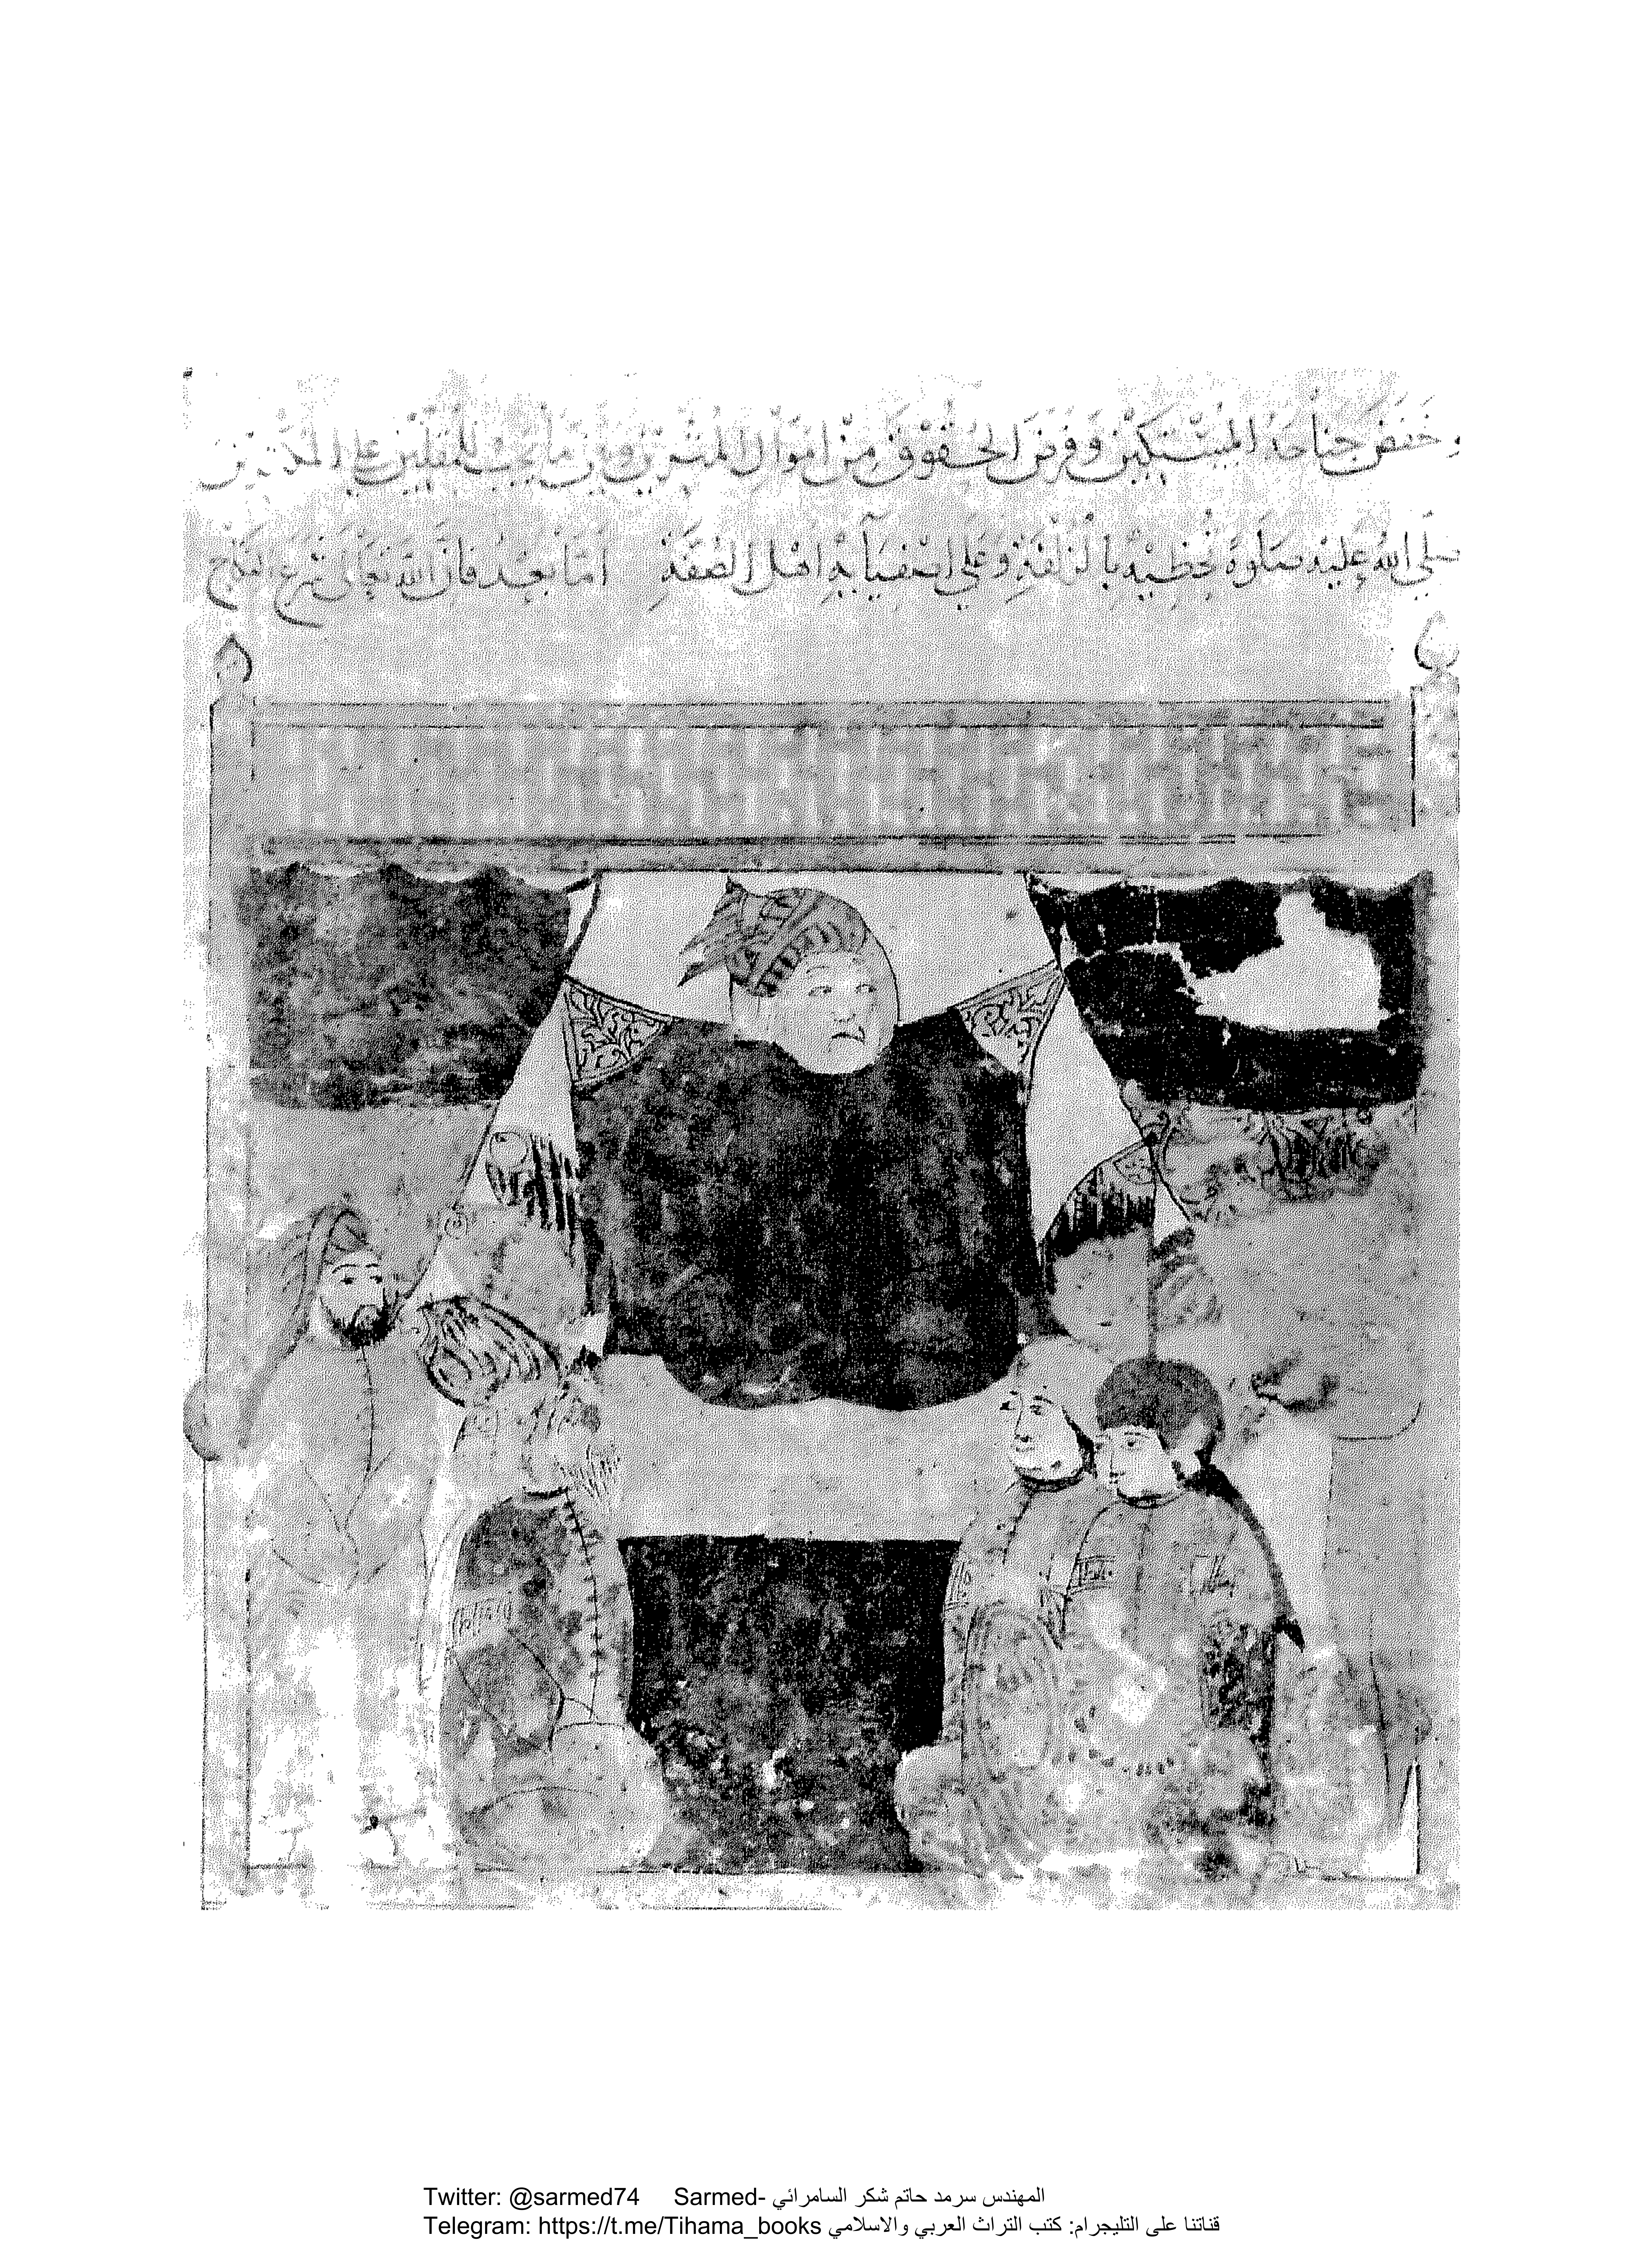 وَخَفَضَ جَناحَهُ لِلمُسْتَكِيْنِ وَفَرَضَ الحُقُوْقَ مِنْ امْوَالِ المُثْرِيْنَ وبَيَّنَ مَا يَجِبُ لِلْمُقِلِّيْنَ عَلى المُكْثِرِيْنَ
صَلى اللهُ عليْهِ صَلوةً تُحْظِيْهِ بالزُلْفَةِ وعَلَى اصْفِيَآئِهِ اهْلِ الصُفَّةِ امّا بَعْدُ فَانَّ اللهَ تَعَالى شَرَعَ النِكَاحَ
Twitter: @sarmed74 Sarmed- المهندس سرمد حاتم شكر السامرائي
Telegram: https://t.me/Tihama_books قناتنا على التليجرام: كتب التراث العربي والاسلامي